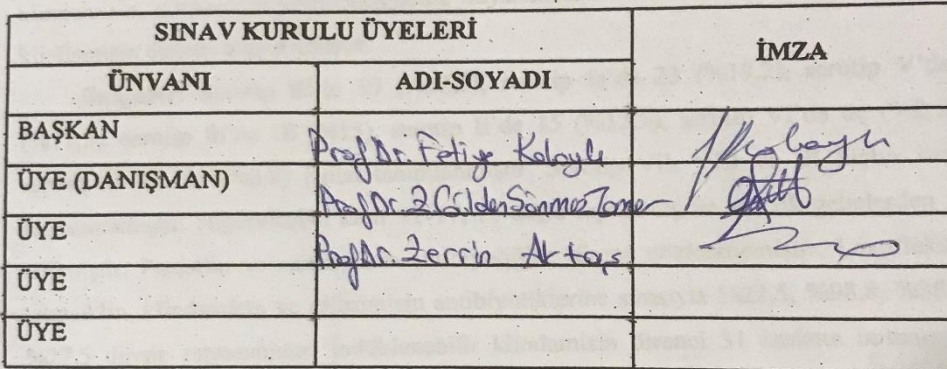 SINAV KURULU ÜYELERİ
İMZA
ÜNVANI ADI-SOYADI
BAŞKAN Prof Dr. Fetiye Kolaylı
ÜYE (DANIŞMAN) Prof Dr. Gülden Sönmez Tamer
ÜYE Prof Dr. Zerrin Aktaş
ÜYE
ÜYE